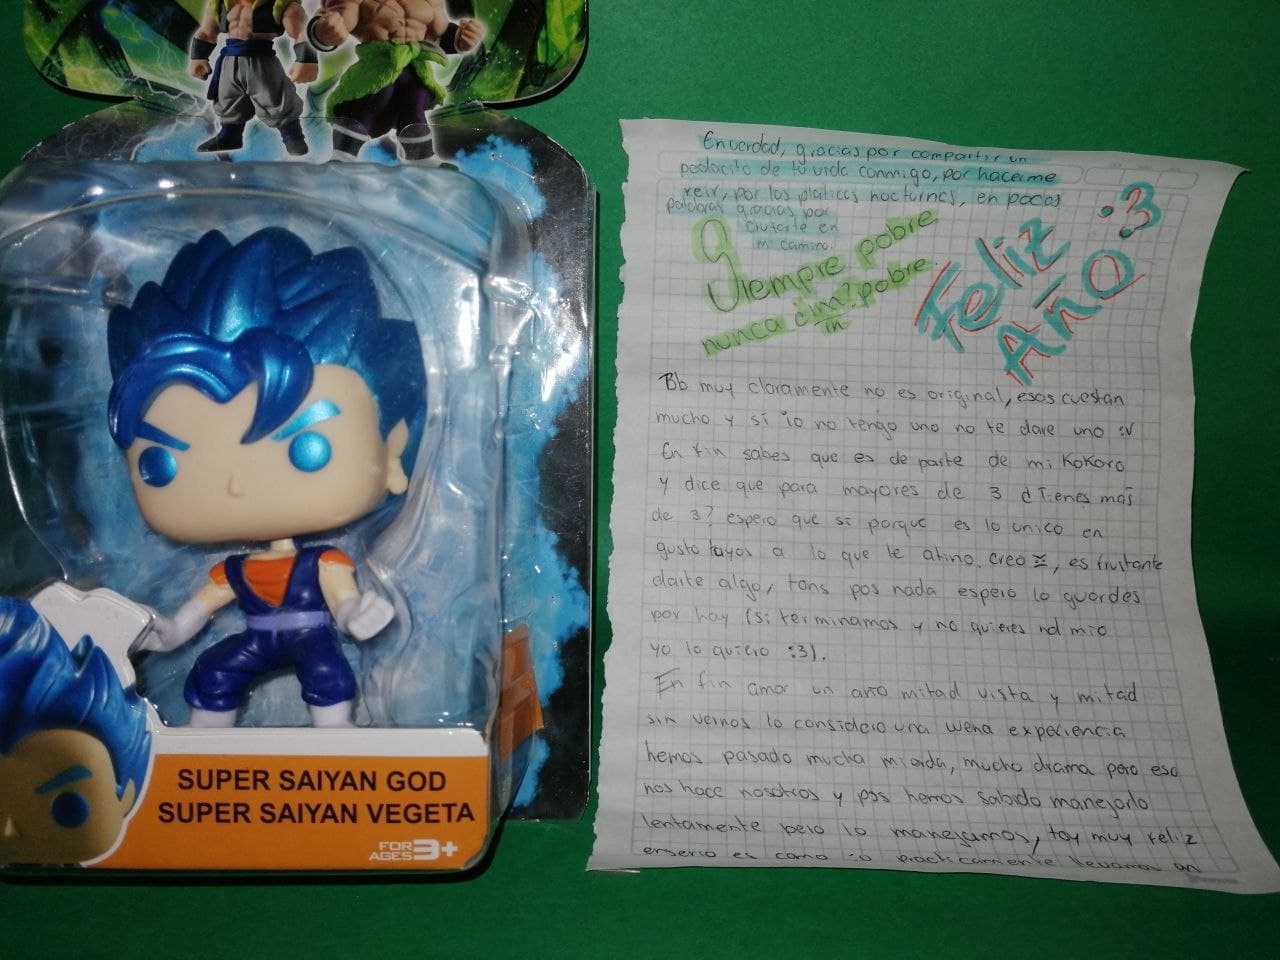 SUPER SAIYAN GOD
SUPER SAIYAN VEGETA
FOR
AGES 3+
En verdad, gracias por compartir un
pedacito de tu vida conmigo, por hacerme
reir, por las platicas nocturnas, en pocas
palabras gracias por
cruzarte en
mi camino.
Siempre pobre
nunca inpobre.
Feliz :3
Año
Bb muy claramente no es original, esos cuestan
mucho y si io no tengo uno no te dare uno :v
En fin sabes que es de parte de mi Kokoro
y dice que para mayores de 3 ¿Tienes mas
de 3? espero que si porque es lo unico en
gustos tuyos a lo que le atino creo, es frustante
darte algo, tons pos nada espero lo guardes
por hay (si terminamos y no quieres nd mio
yo lo quiero :3).
En fin amor un año mitad vista y mitad
sin vernos lo considero una wena experiencia
hemos pasado mucha mierda, mucho drama pero eso
nos hace nosotros y pos hemos sabido manejarlo
lentamente pero lo manejamos, toy muy feliz
enserio es como io practicamente llevamos un